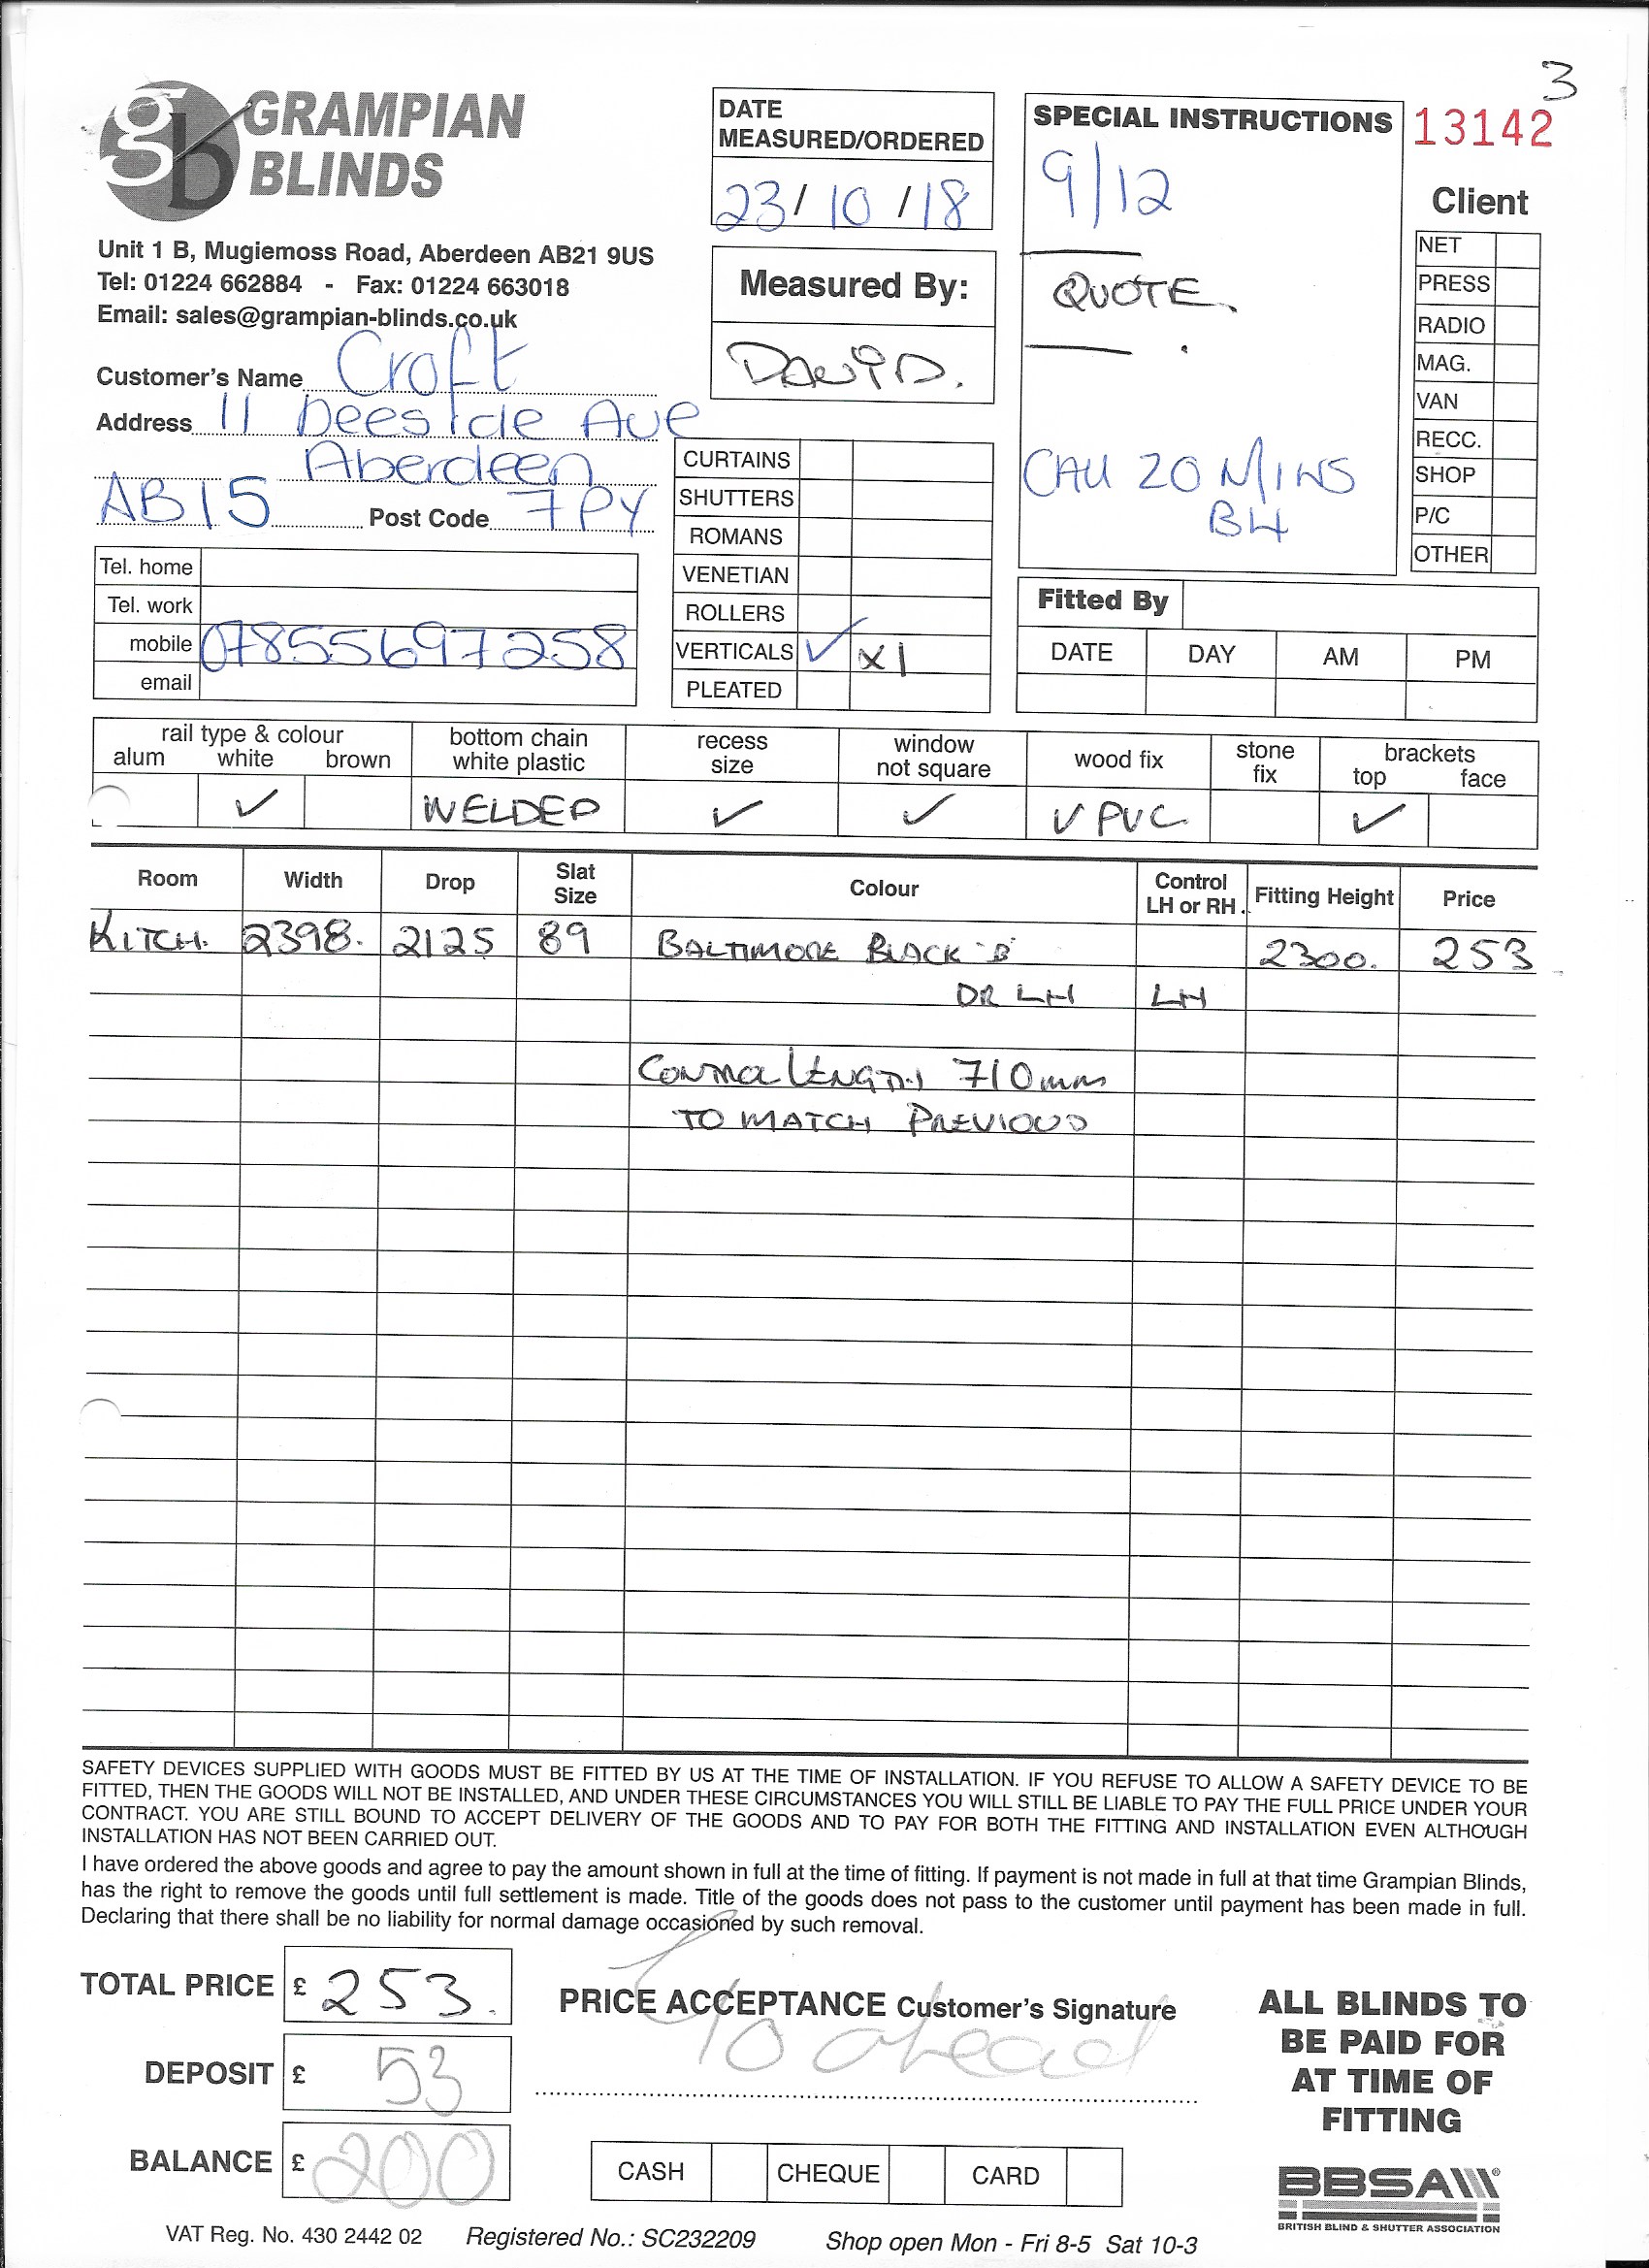 3
gb GRAMPIAN
BLINDS
Unit 1 B, Mugiemoss Road, Aberdeen AB21 9US
Tel: 01224 662884 - Fax: 01224 663018
Email: sales@grampian-blinds.co.uk
Customer's Name Croft
Address 11 Deeside Ave
Aberdeen
AB15 Post Code 7PY
Tel. home
Tel. work
mobile 07855697258
email
DATE
MEASURED/ORDERED
23/10/18
Measured By:
DAVID.
CURTAINS
SHUTTERS
ROMANS
VENETIAN
ROLLERS
VERTICALS ✓ x1
PLEATED
SPECIAL INSTRUCTIONS
9/12
QUOTE.
CALL 20 MINS
B4
13142
Client
NET
PRESS
RADIO
MAG.
VAN
RECC.
SHOP
P/C
OTHER
Fitted By
DATE DAY AM PM
rail type & colour
alum white brown
bottom chain
white plastic
recess
size
window
not square
wood fix
stone
fix
brackets
top face
✓ WELDED ✓ ✓ UPVC ✓
Room Width Drop Slat Size Colour Control LH or RH. Fitting Height Price
KITCH. 2398. 2125 89 BALTIMORE BLACK "B" 2300. 253
DR LH LH
CONTROL LENGTH 710mm
TO MATCH PREVIOUS
SAFETY DEVICES SUPPLIED WITH GOODS MUST BE FITTED BY US AT THE TIME OF INSTALLATION. IF YOU REFUSE TO ALLOW A SAFETY DEVICE TO BE
FITTED, THEN THE GOODS WILL NOT BE INSTALLED, AND UNDER THESE CIRCUMSTANCES YOU WILL STILL BE LIABLE TO PAY THE FULL PRICE UNDER YOUR
CONTRACT. YOU ARE STILL BOUND TO ACCEPT DELIVERY OF THE GOODS AND TO PAY FOR BOTH THE FITTING AND INSTALLATION EVEN ALTHOUGH
INSTALLATION HAS NOT BEEN CARRIED OUT.
I have ordered the above goods and agree to pay the amount shown in full at the time of fitting. If payment is not made in full at that time Grampian Blinds,
has the right to remove the goods until full settlement is made. Title of the goods does not pass to the customer until payment has been made in full.
Declaring that there shall be no liability for normal damage occasioned by such removal.
TOTAL PRICE £ 253.
DEPOSIT £ 53
BALANCE £ 200
PRICE ACCEPTANCE Customer's Signature
Go ahead
CASH CHEQUE CARD
ALL BLINDS TO
BE PAID FOR
AT TIME OF
FITTING
BBSA
BRITISH BLIND & SHUTTER ASSOCIATION
VAT Reg. No. 430 2442 02 Registered No.: SC232209 Shop open Mon - Fri 8-5 Sat 10-3